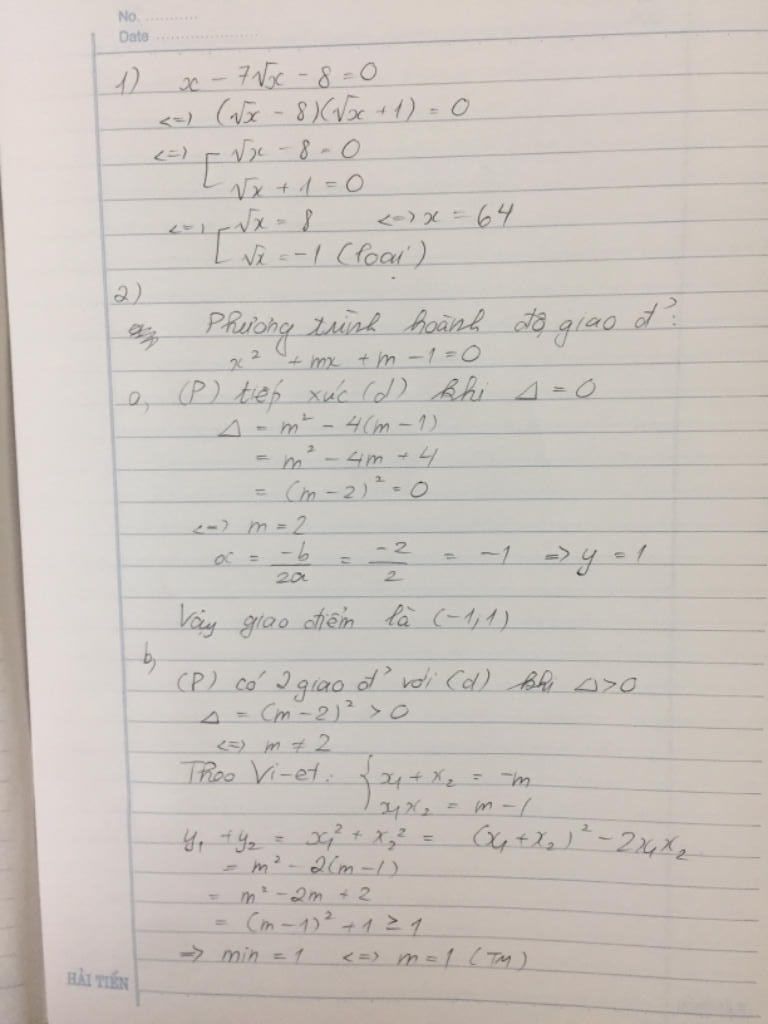 No. ............
Date ........................
1) x - 7√x - 8 = 0
<=> (√x - 8)(√x + 1) = 0
<=> [ √x - 8 = 0
√x + 1 = 0
<=> [ √x = 8 <=> x = 64
√x = -1 (loại)
2)
Phương trình hoành độ giao đ':
x² + mx + m - 1 = 0
a, (P) tiếp xúc (d) khi Δ = 0
Δ = m² - 4(m - 1)
= m² - 4m + 4
= (m - 2)² = 0
<=> m = 2
x = -b/2a = -2/2 = -1 => y = 1
Vậy giao điểm là (-1,1)
b,
(P) có 2 giao đ' với (d) khi Δ > 0
Δ = (m - 2)² > 0
<=> m ≠ 2
Theo Vi-et: { x₁ + x₂ = -m
x₁x₂ = m - 1
y₁ + y₂ = x₁² + x₂² = (x₁ + x₂)² - 2x₁x₂
= m² - 2(m - 1)
= m² - 2m + 2
= (m - 1)² + 1 ≥ 1
=> min = 1 <=> m = 1 (TM)
HẢI TIẾN